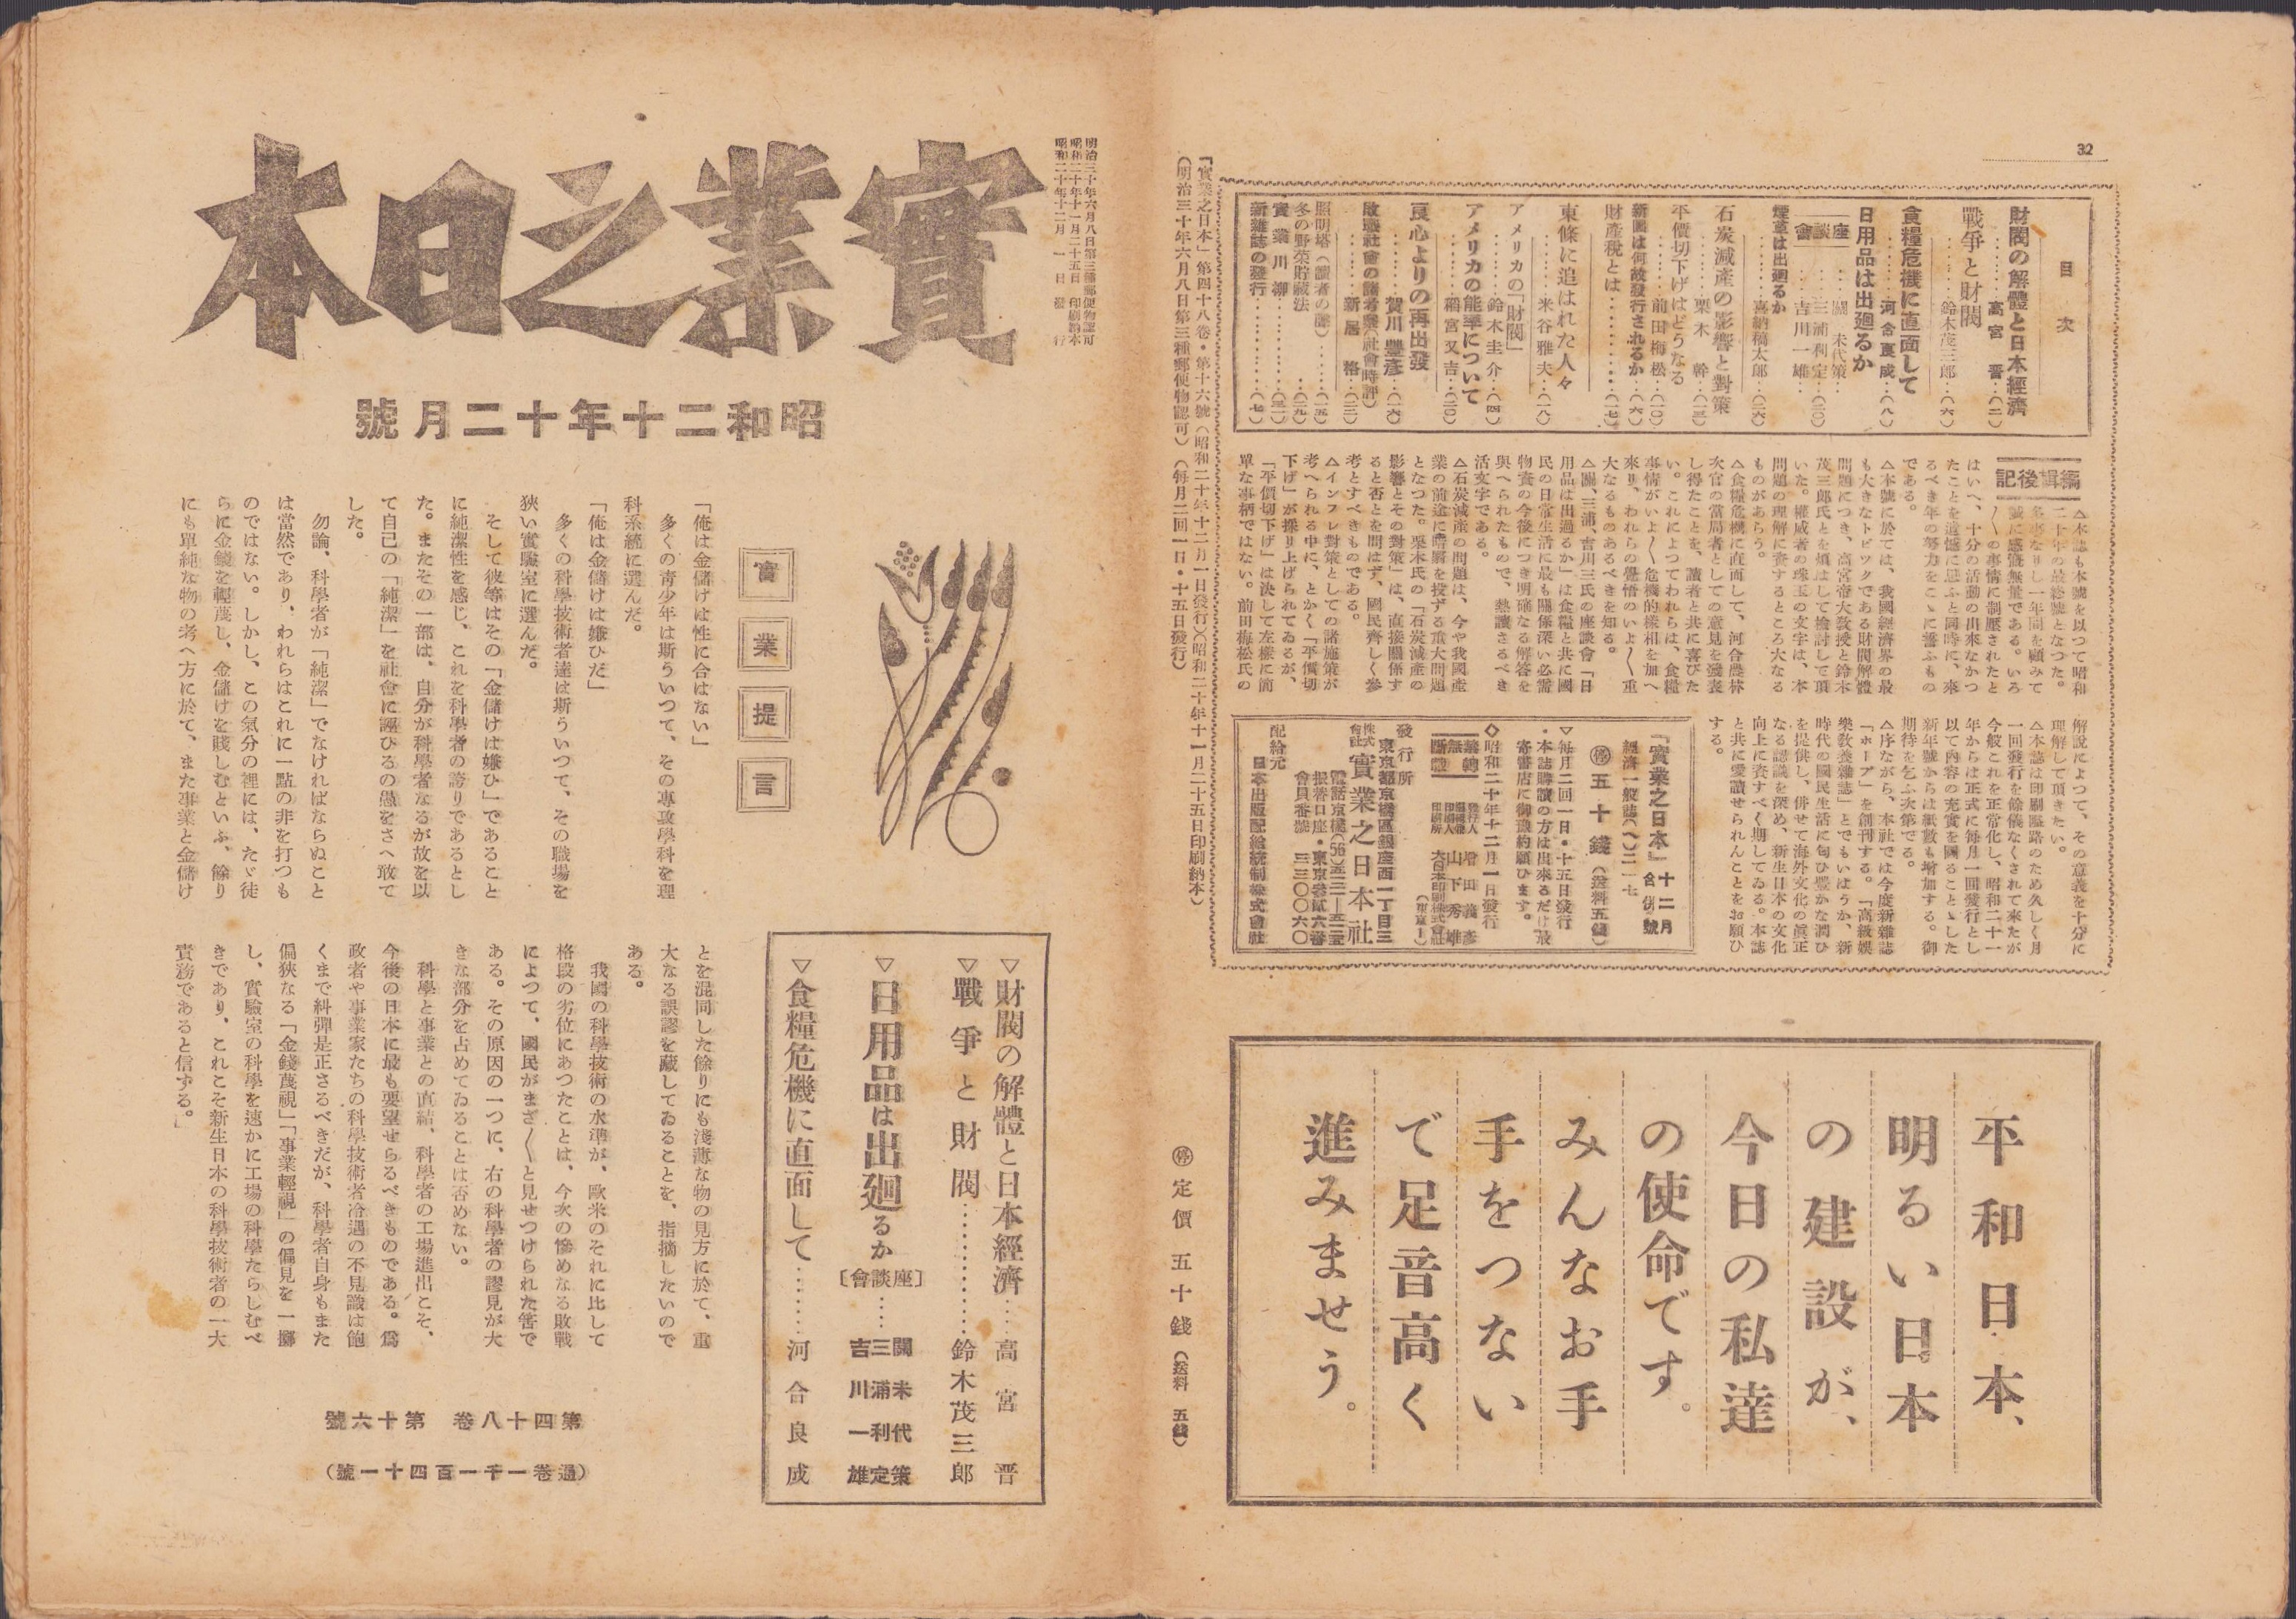 32
目次
財閥の解體と日本經濟
………高宮 晋…(二)
戰爭と財閥
………鈴木茂三郎…(六)
食糧危機に直面して
………河合良成…(八)
日用品は出廻るか
座談會
…關 未代策…
…三浦利定…(二〇)
…吉川一雄…
煙草は出廻るか
………喜納穉太郎…(二六)
石炭減産の影響と對策
………栗木 幹…(一三)
平價切下げはどうなる
………前田梅松…(一〇)
新圓は何故發行されるか…(六)
財産稅とは…………(一七)
東條に追はれた人々
………米谷雅夫…(一八)
アメリカの「財閥」
………鈴木圭介…(四)
アメリカの能率について
………稻宮又吉…(二〇)
良心よりの再出發
………賀川豊彦…(一六)
敗戰社會の諸考察(社會時評)
………新居 格…(二三)
照明塔(讀者の聲)……(一五)
冬の野菜貯藏法…(二九)
實業川柳…………(三一)
新雜誌の發行…………(七)
編輯後記
△本誌も本號を以つて昭和
二十年の最終號となつた。
多事なりし一年間を顧みて
誠に感慨無量である。いろ
〱の事情に制壓されたと
はいへ、十分の活動の出來なかつ
たことを遺憾に思ふと同時に、來
るべき年の努力をこゝに誓ふもの
である。
△本號に於ては、我國經濟界の最
も大きなトピックである財閥解體
問題につき、高宮帝大敎授と鈴木
茂三郎氏とを煩はして檢討して頂
いた。權威者の珠玉の文字は、本
問題の理解に資するところ大なる
ものがあらう。
△食糧危機に直面して、河合農林
次官の當局者としての意見を發表
し得たことを、讀者と共に喜びた
い。これによつてわれらは、食糧
事情がいよ〱危機的樣相を加へ
來り、われらの覺悟のいよ〱重
大なるものあるべきを知る。
△關、三浦、吉川三氏の座談會「日
用品は出廻るか」は食糧と共に國
民の日常生活に最も關係深い必需
物資の今後につき明確なる解答を
與へられたもので、熱讀さるべき
活文字である。
△石炭減産の問題は、今や我國産
業の前途に暗影を投ずる重大問題
となつた。栗木氏の「石炭減産の
影響とその對策」は、直接關係す
ると否とを問はず、國民齊しく參
考とすべきものである。
△インフレ對策としての諸施策が
考へられる中に、とかく「平價切
下げ」が採り上げられてゐるが、
「平價切下げ」は決して左樣に簡
單な事柄ではない。前田梅松氏の
解說によつて、その意義を十分に
理解して頂きたい。
△本誌は印刷隘路のため久しく月
一回發行を餘儀なくされて來たが
今般これを正常化し、昭和二十一
年からは正式に每月二回發行とし
以て內容の充實を圖ることゝした
新年號からは紙數も增加する。御
期待を乞ふ次第である。
△序ながら、本社では今度新雜誌
「ホープ」を創刊する。「高級娛
樂敎養雜誌」とでもいはうか、新
時代の國民生活に匂ひ豐かな潤ひ
を提供し、併せて海外文化の眞正
なる認識を深め、新生日本の文化
向上に資すべく期してゐる。本誌
と共に愛讀せられんことをお願ひ
する。
「實業之日本」十二月合併號
經濟一般誌(へ)二一七
㊡ 五十錢(送料五錢)
▽每月二回一日・十五日發行
・本誌購讀の方は出來るだけ最
寄書店に御豫約願ひます。
◇昭和二十年十二月一日發行
禁無斷轉載
發行人編輯兼 增田義彦
印刷人 山下秀雄
印刷所 大日本印刷株式會社
(東京一)
發行所
東京都京橋區銀座西一丁目三
株式會社實業之日本社
電話京橋(56)
振替口座・東京參貳六番
會員番號 三三〇〇六〇
配給元
日本出版配給統制株式會社
『實業之日本』第四十八卷・第十六號(昭和二十年十二月一日發行)(昭和二十年十一月二十五日印刷納本)
(明治三十年六月八日第三種郵便物認可)(每月二回一日・十五日發行)
平和日本、
明るい日本
の建設が、
今日の私達
の使命です。
みんなお手
手をつない
で足音高く
進みませう。
㊡定價 五十錢(送料 五錢)
明治三十年六月八日第三種郵便物認可
昭和二十年十一月二十五日 印刷納本
昭和二十年十二月 一 日 發 行
實業之日本
昭和二十年十二月號
實業提言
「俺は金儲けは性に合はない」
多くの靑少年は斯ういつて、その專攻學科を理
科系統に選んだ。
「俺は金儲けは嫌ひだ」
多くの科學技術者達は斯ういつて、その職場を
狹い實驗室に選んだ。
そして彼等はその「金儲けは嫌ひ」であること
に純潔性を感じ、これを科學者の誇りであるとし
た。またその一部は、自分が科學者なるが故を以
て自己の「純潔」を社會に誣ひるの愚をさへ敢て
した。
勿論、科學者が「純潔」でなければならぬこと
は當然であり、われらはこれに一點の非を打つも
のではない。しかし、この氣分の裡には、たゞ徒
らに金錢を輕蔑し、金儲けを賤しむといふ、餘り
にも單純な物の考へ方に於て、また事業と金儲け
とを混同した餘りにも淺薄な物の見方に於て、重
大なる誤謬を藏してゐることを、指摘したいので
ある。
我國の科學技術の水準が、歐米のそれに比して
格段の劣位にあつたことは、今次の慘めなる敗戰
によつて、國民がまざ〱と見せつけられた筈で
ある。その原因の一つに、右の科學者の謬見が大
きな部分を占めてゐることは否めない。
科學と事業との直結、科學者の工場進出こそ、
今後の日本に最も要望せらるべきものである。爲
政者や事業家たちの科學技術者冷遇の不見識は飽
くまで糾彈是正さるべきだが、科學者自身もまた
偏狹なる「金錢蔑視」「事業輕視」の偏見を一擲
し、實驗室の科學を速かに工場の科學たらしむべ
きであり、これこそ新生日本の科學技術者の一大
責務であると信ずる。」
▽財閥の解體と日本經濟……高宮 晋
▽戰爭と財閥…………鈴木茂三郎
▽日用品は出廻るか〔座談會〕……
關 未代策
三浦利定
吉川一雄
▽食糧危機に直面して………河合良成
第四十八卷 第十六號
(通卷一千一百四十一號)